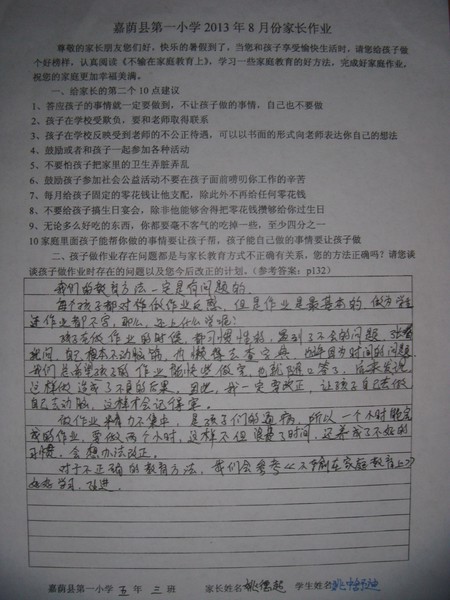 嘉荫县第一小学 2013 年 8 月份家长作业
尊敬的家长朋友您们好，快乐的暑假到了，当您和孩子享受愉快生活时，请您给孩子做
个好榜样，认真阅读《不输在家庭教育上》，学习一些家庭教育的好方法，完成好家庭作业，
祝您的家庭更加幸福美满。
一、给家长的第二个 10 点建议
1、答应孩子的事情就一定要做到，不让孩子做的事情，自己也不要做
2、孩子在学校受欺负，要和老师取得联系
3、孩子在学校反映受到老师的不公正待遇，可以以书面的形式向老师表达你自己的想法
4、鼓励或者和孩子一起参加各种活动
5、不要怕孩子把家里的卫生弄脏弄乱
6、鼓励孩子参加社会公益活动不要在孩子面前唠叨你工作的辛苦
7、每月给孩子固定的零花钱让他支配，除此外不再给任何零花钱
8、不要给孩子搞生日宴会，除非他能够舍得把零花钱攒够给你过生日
9、无论多么好吃的东西，你都要毫不客气的吃掉一些，至少四分之一
10 家庭里面孩子能帮你做的事情要让孩子帮，孩子能自己做的事情要让孩子做
二、孩子做作业存在问题都是与家长教育方式不正确有关系，您的方法正确吗？请您谈
谈孩子做作业时存在的问题以及您今后改正的计划，（参考答案：p132）
我们的教育方法一定是有问题的。
每个孩子都对作做作业反感，但是作业是最基本的，做为学生
连作业都不写，那么，还上什么学呢？
孩子在做作业的时候，都习惯性的，遇到了不会的问题，张
就问，自己根本不动脑筋，也懒得去查字典，当时因为时间的问题，
我们总希望孩子的作业能快些做完，也就随口答了，后来发现，
这样做造成了不良的后果，因此，我一定要改正，让孩子自己去做
自己去动脑，这样才会记得牢。
做作业精力不集中，是孩子们的通病，所以一个小时能完
成的作业，要做两个小时，这样不但浪费了时间，还养成了不好的
习惯，会想办法改正。
对于不正确的教育方法，我们会参考《不输在家庭教育上》
好好学习，改进。
嘉荫县第一小学 五 年 三 班 家长姓名 姚 学生姓名 姚